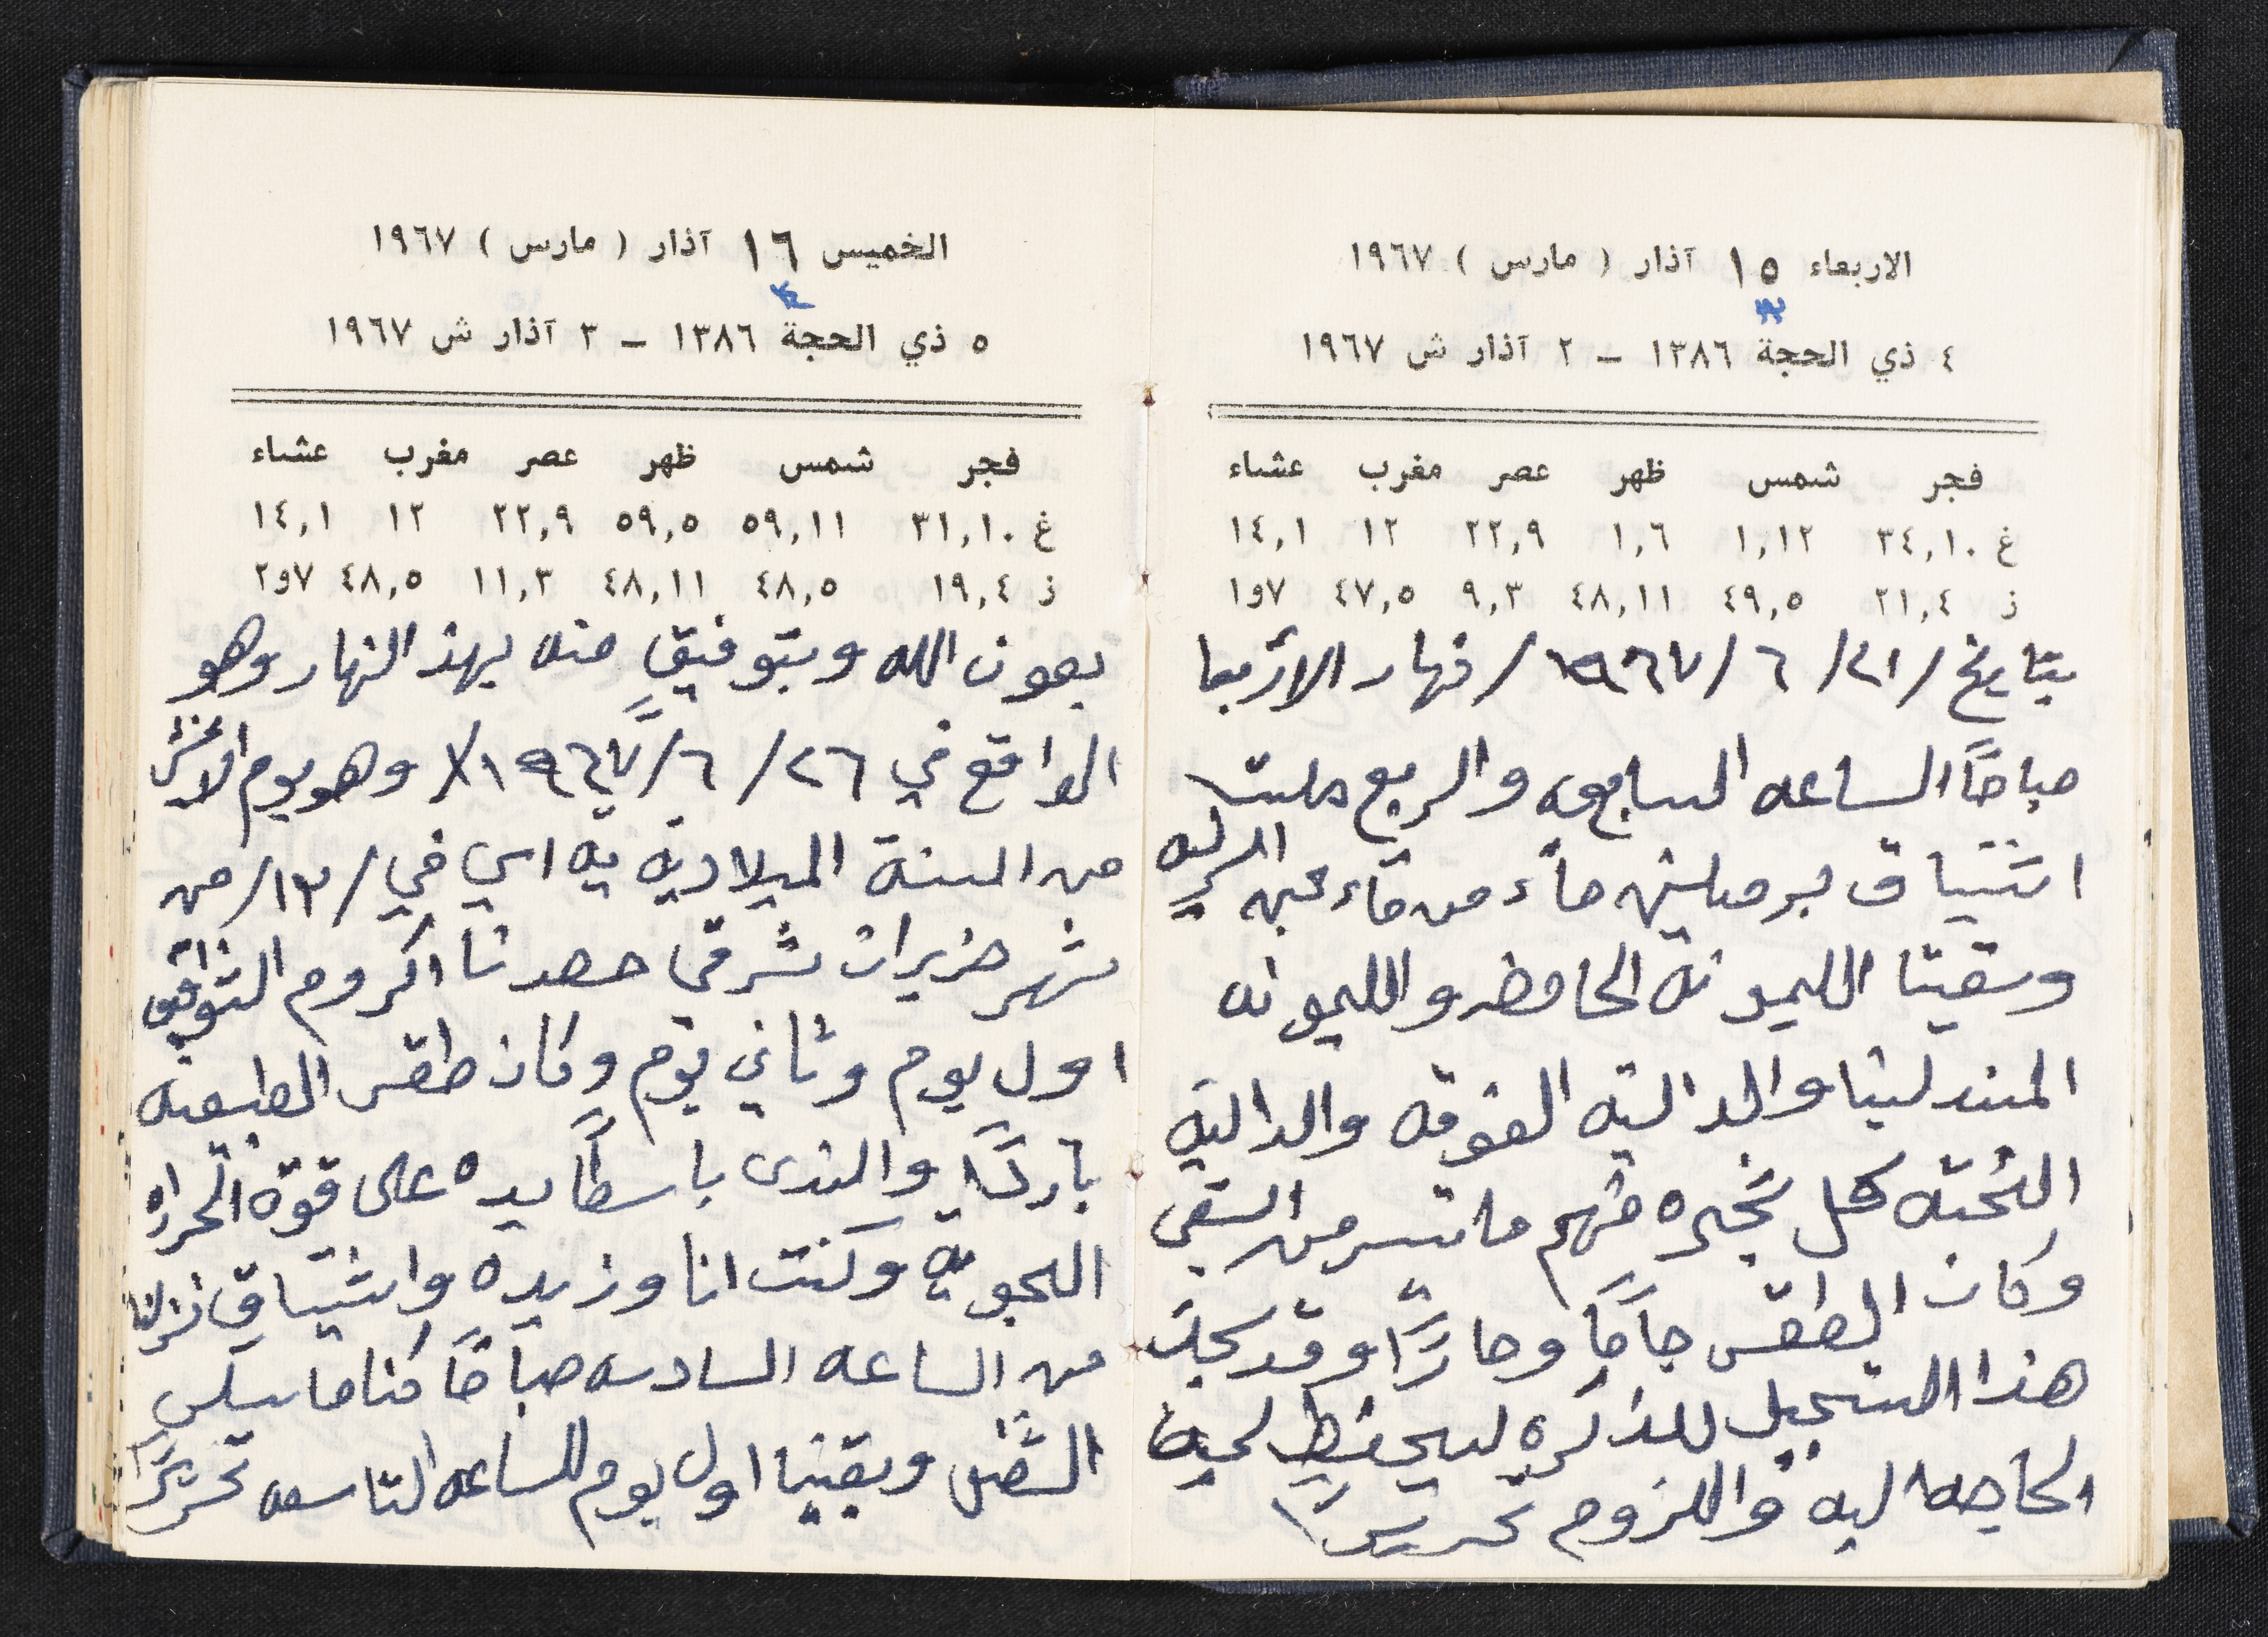 الاربعاء ١٥ آذار ( مارس ) ١٩٦٧
٤ ذي الحجة ١٣٨٦ – ٢ آذار ش ١٩٦٧
فجر شمس ظهر عصر مغرب عشاء
غ ٣٤,١٠ ١,١٢ ١,٦ ٢٢,٩ ١٢ ١٤,١
ز ٢١,٤ ٤٩,٥ ٤٨,١١ ٩,٣ ٤٧,٥ ١و٧
بتايخ /٢١/ ٦ /١٩٦٧/ نهار الأربعا
صباحاً الساعه السابعه والربع ملت
اشتياق برملين ماء من ماء عين البركه
وسقيتا الليمونة الحامضه والليمونه
المندلينا والداليه الفوقه والداليه
التحته كل شجره منهم ما تيسر من السقي
وكان الطقس جاماً وحاراً وقد سجلت
هذا التسجيل للذكره ليحفظ لحين
الحاجه اليه واللزوم تحريراً
الخميس ١٦ آذار ( مارس ) ١٩٦٧
٥ ذي الحجة ١٣٨٦ – ٣ آذار ش ١٩٦٧
فجر شمس ظهر عصر مغرب عشاء
غ ٣١,١٠ ٥٩,١١ ٥٩,٥ ٢٢,٩ ١٢ ١٤,١
ز ١٩,٤ ٤٨,٥ ٤٨,١١ ١١,٣ ٤٨,٥ ٢و٧
بعون الله وبتوفيقٍ منه بهذ النهار وهو
الواقع في ٢٦/ ٦/ ١٩٦٧/ وهو يوم الاثنين
من السنة الميلاديه يه اي في /١٣/ من
شهر حزيران شرقي حصدنا اكروم التوافيق
اول يوم وثاني يوم وكان طقس الطبيعه
بارداً والندى باسطاً يده على قوة الحراره
الجويه وكنت انا وزيده واشتياق نزلنا
من الساعه السادسه صباحاً كنا مابيلش
الشغل وبقينا اول يوم للساعه التاسعه تحريراً